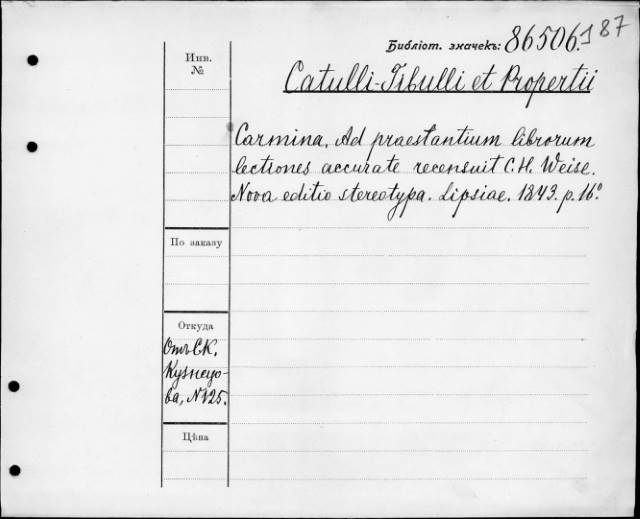 Библіот. значекъ: 86506.1 87
Инв.
№
Catulli-Tibulli et Propertii
Carmina, Ad praestantium librorum
lectiones accurate recensuit C.H. Weise.
Nova editio stereotypa. Lipsiae. 1843. p. 16°
По заказу
Откуда
Отъ С.К.
Кузнецо-
ва, N 125.
Цѣна